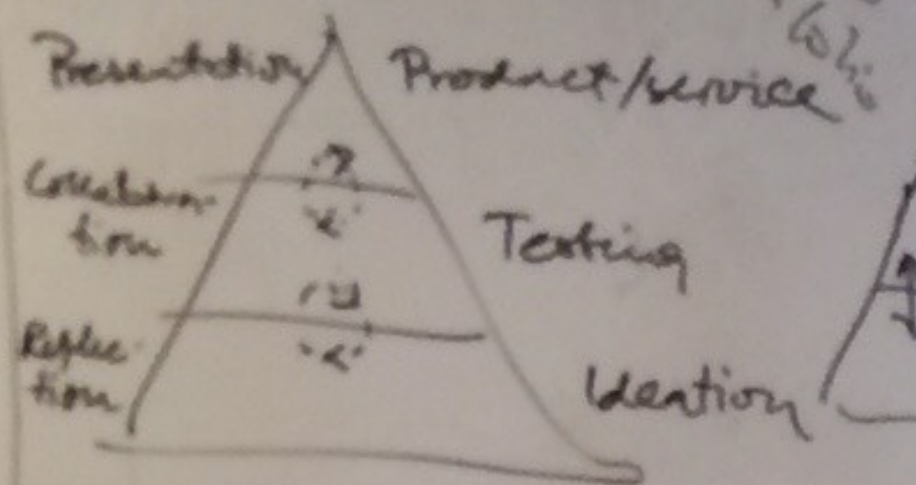 Presentation
Product/service
Collabora-
tion
Testing
Reflec-
tion
Ideation